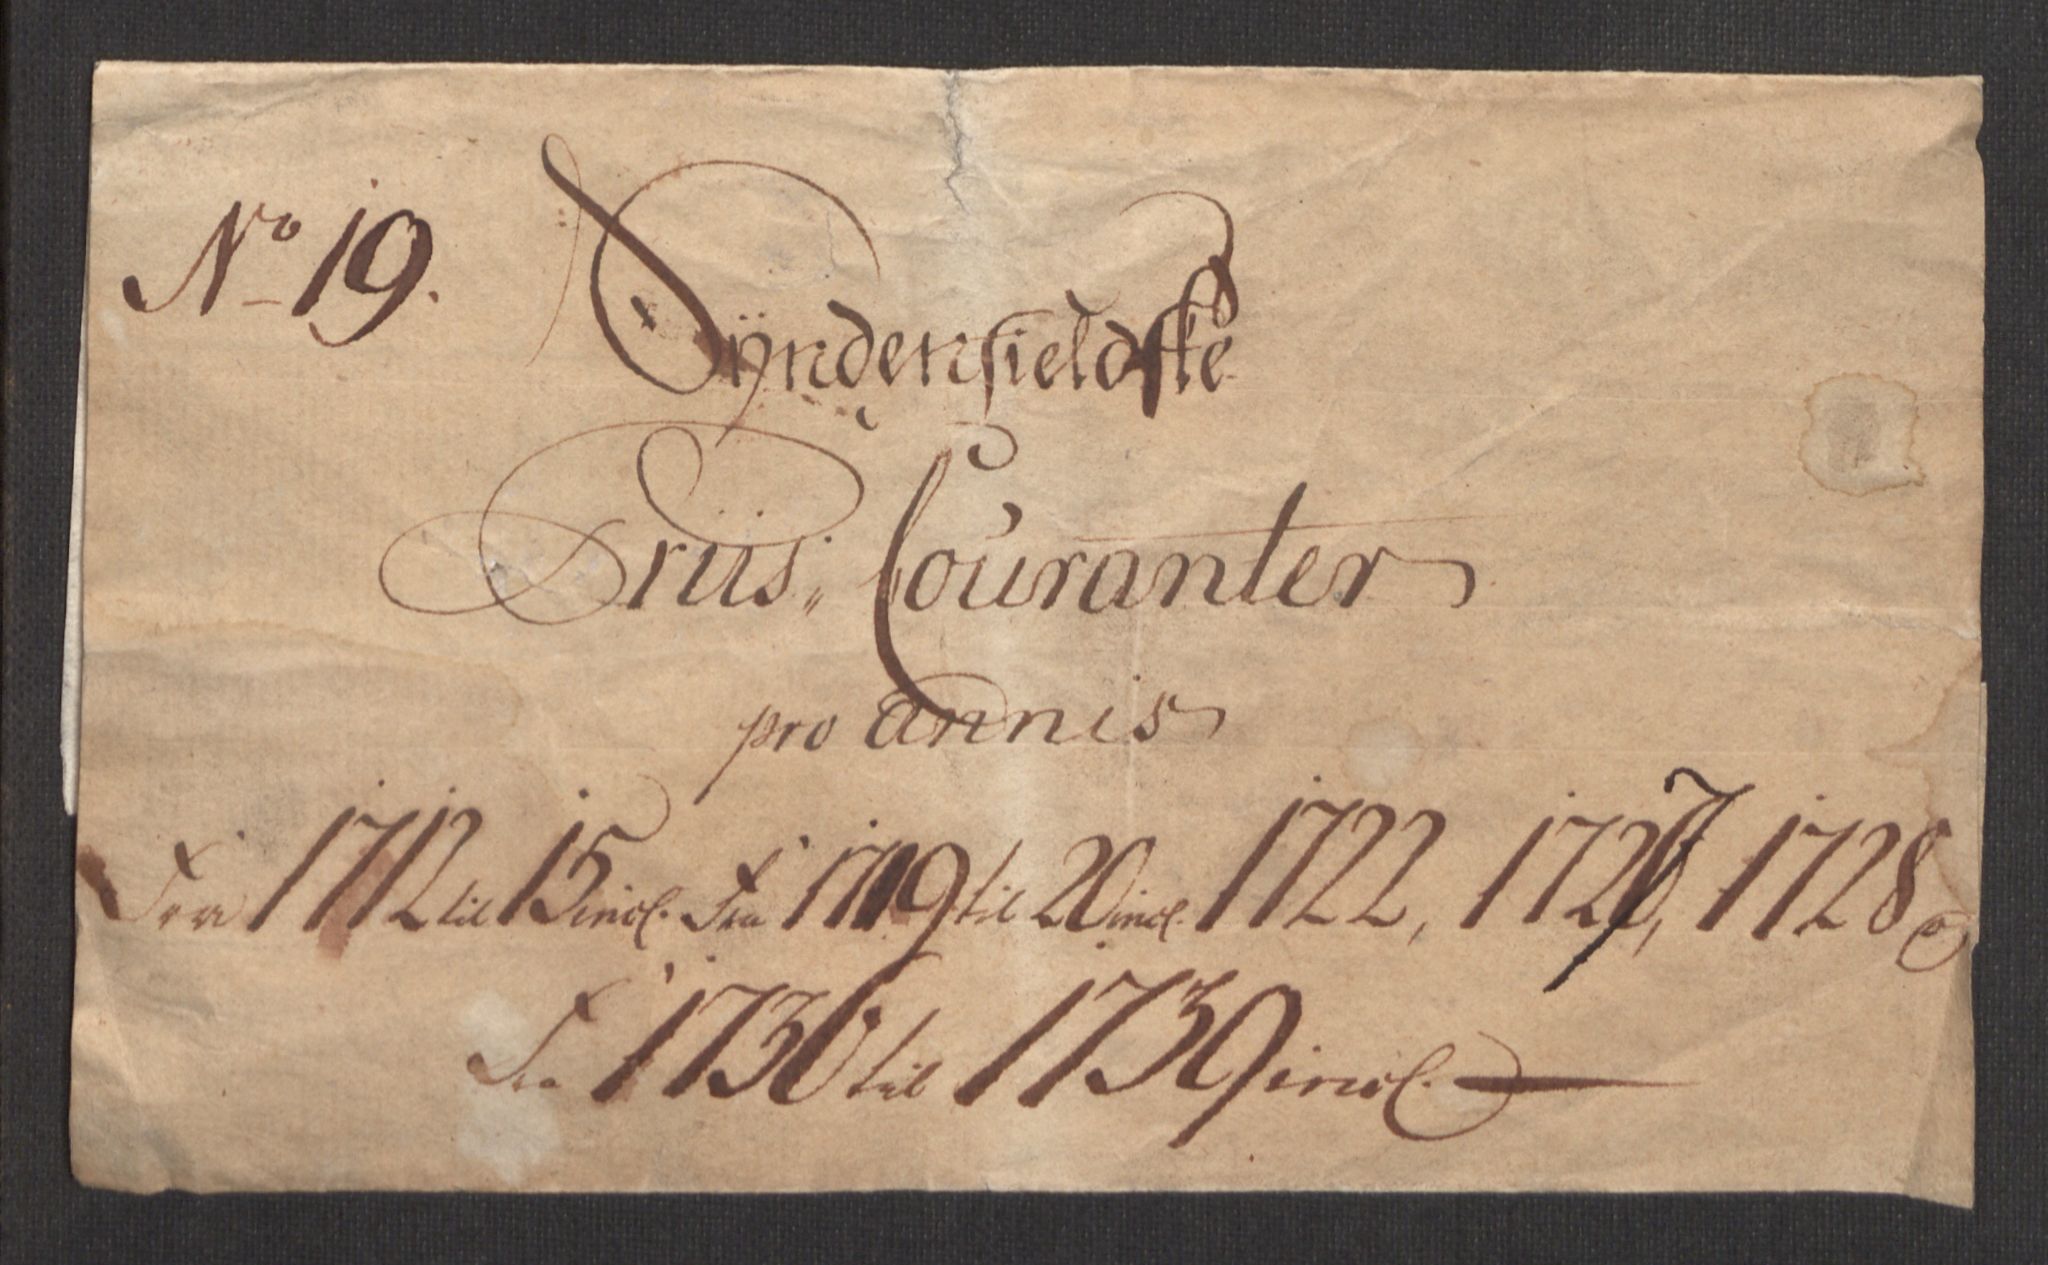 No 19.
Syndenfieldske
Priis, Couranter
pro annis
Fra 1712 til 15 incl. Fra 1719 til 20 incl. 1722, 1727, 1728
Fra 1736 til 1739 incl.